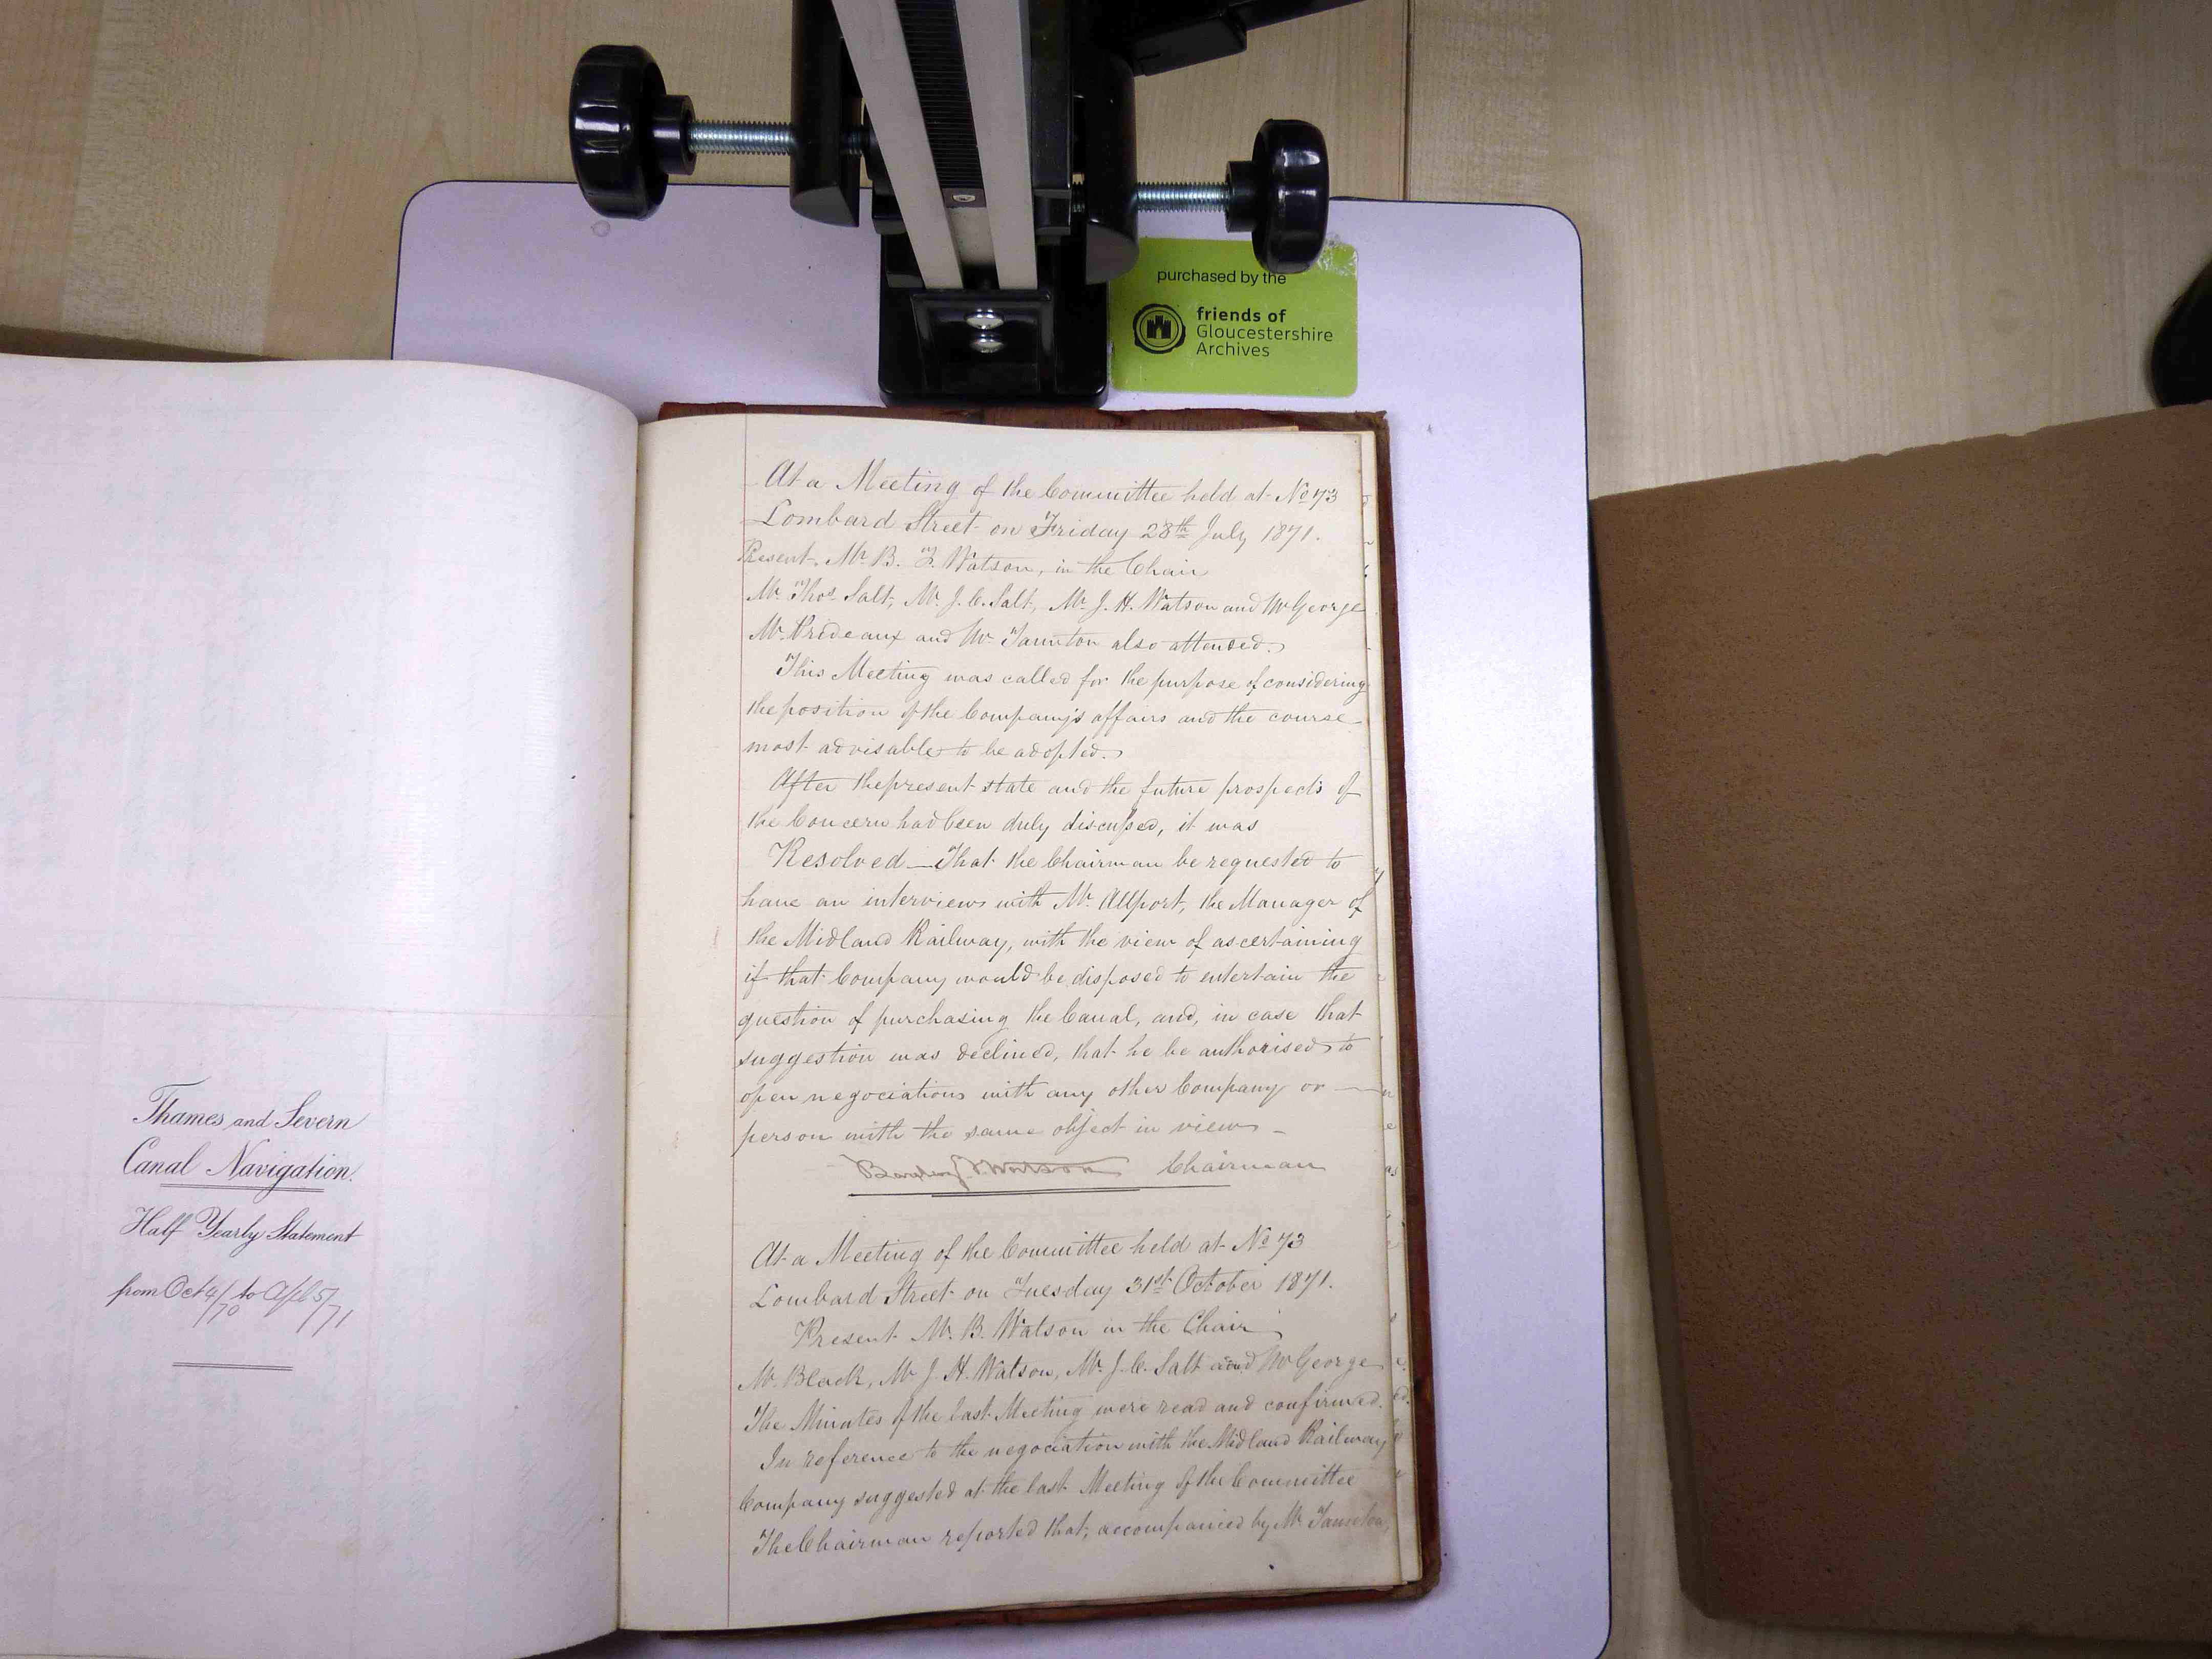 purchased by the
friends of
Gloucestershire
Archives
Thames and Severn
Canal Navigation.
Half Yearly Statement
from Oct 4/70 to Apl 5/71
At a Meeting of the Committee held at No 73
Lombard Street on Friday 28th July 1871.
Present. Mr. B. F. Watson, in the Chair
Mr. Thos. Salt, Mr. J. C. Salt, Mr. J. H. Watson and Mr George
Mr. Prideaux and Mr. Taunton also attended.
This Meeting was called for the purpose of considering
the position of the Company's affairs and the course
most advisable to be adopted.
After the present state and the future prospects of
the Concern had been duly discussed, it was
Resolved — That the Chairman be requested to
have an interview with Mr. Allport, the Manager of
the Midland Railway, with the view of ascertaining
if that Company would be disposed to entertain the
question of purchasing the Canal, and, in case that
suggestion was declined, that he be authorised to
open negociations with any other Company or —
person with the same object in view –
Watson Chairman
At a Meeting of the Committee held at No 73
Lombard Street on Tuesday 31st October 1871.
Present Mr. B. Watson in the Chair
Mr. Black, Mr J. H. Watson, Mr. J. C. Salt and Mr George
The Minutes of the last Meeting were read and confirmed.
In reference to the negociation with the Midland Railway
Company suggested at the last Meeting of the Committee
The Chairman reported that, accompanied by Mr. Taunton,